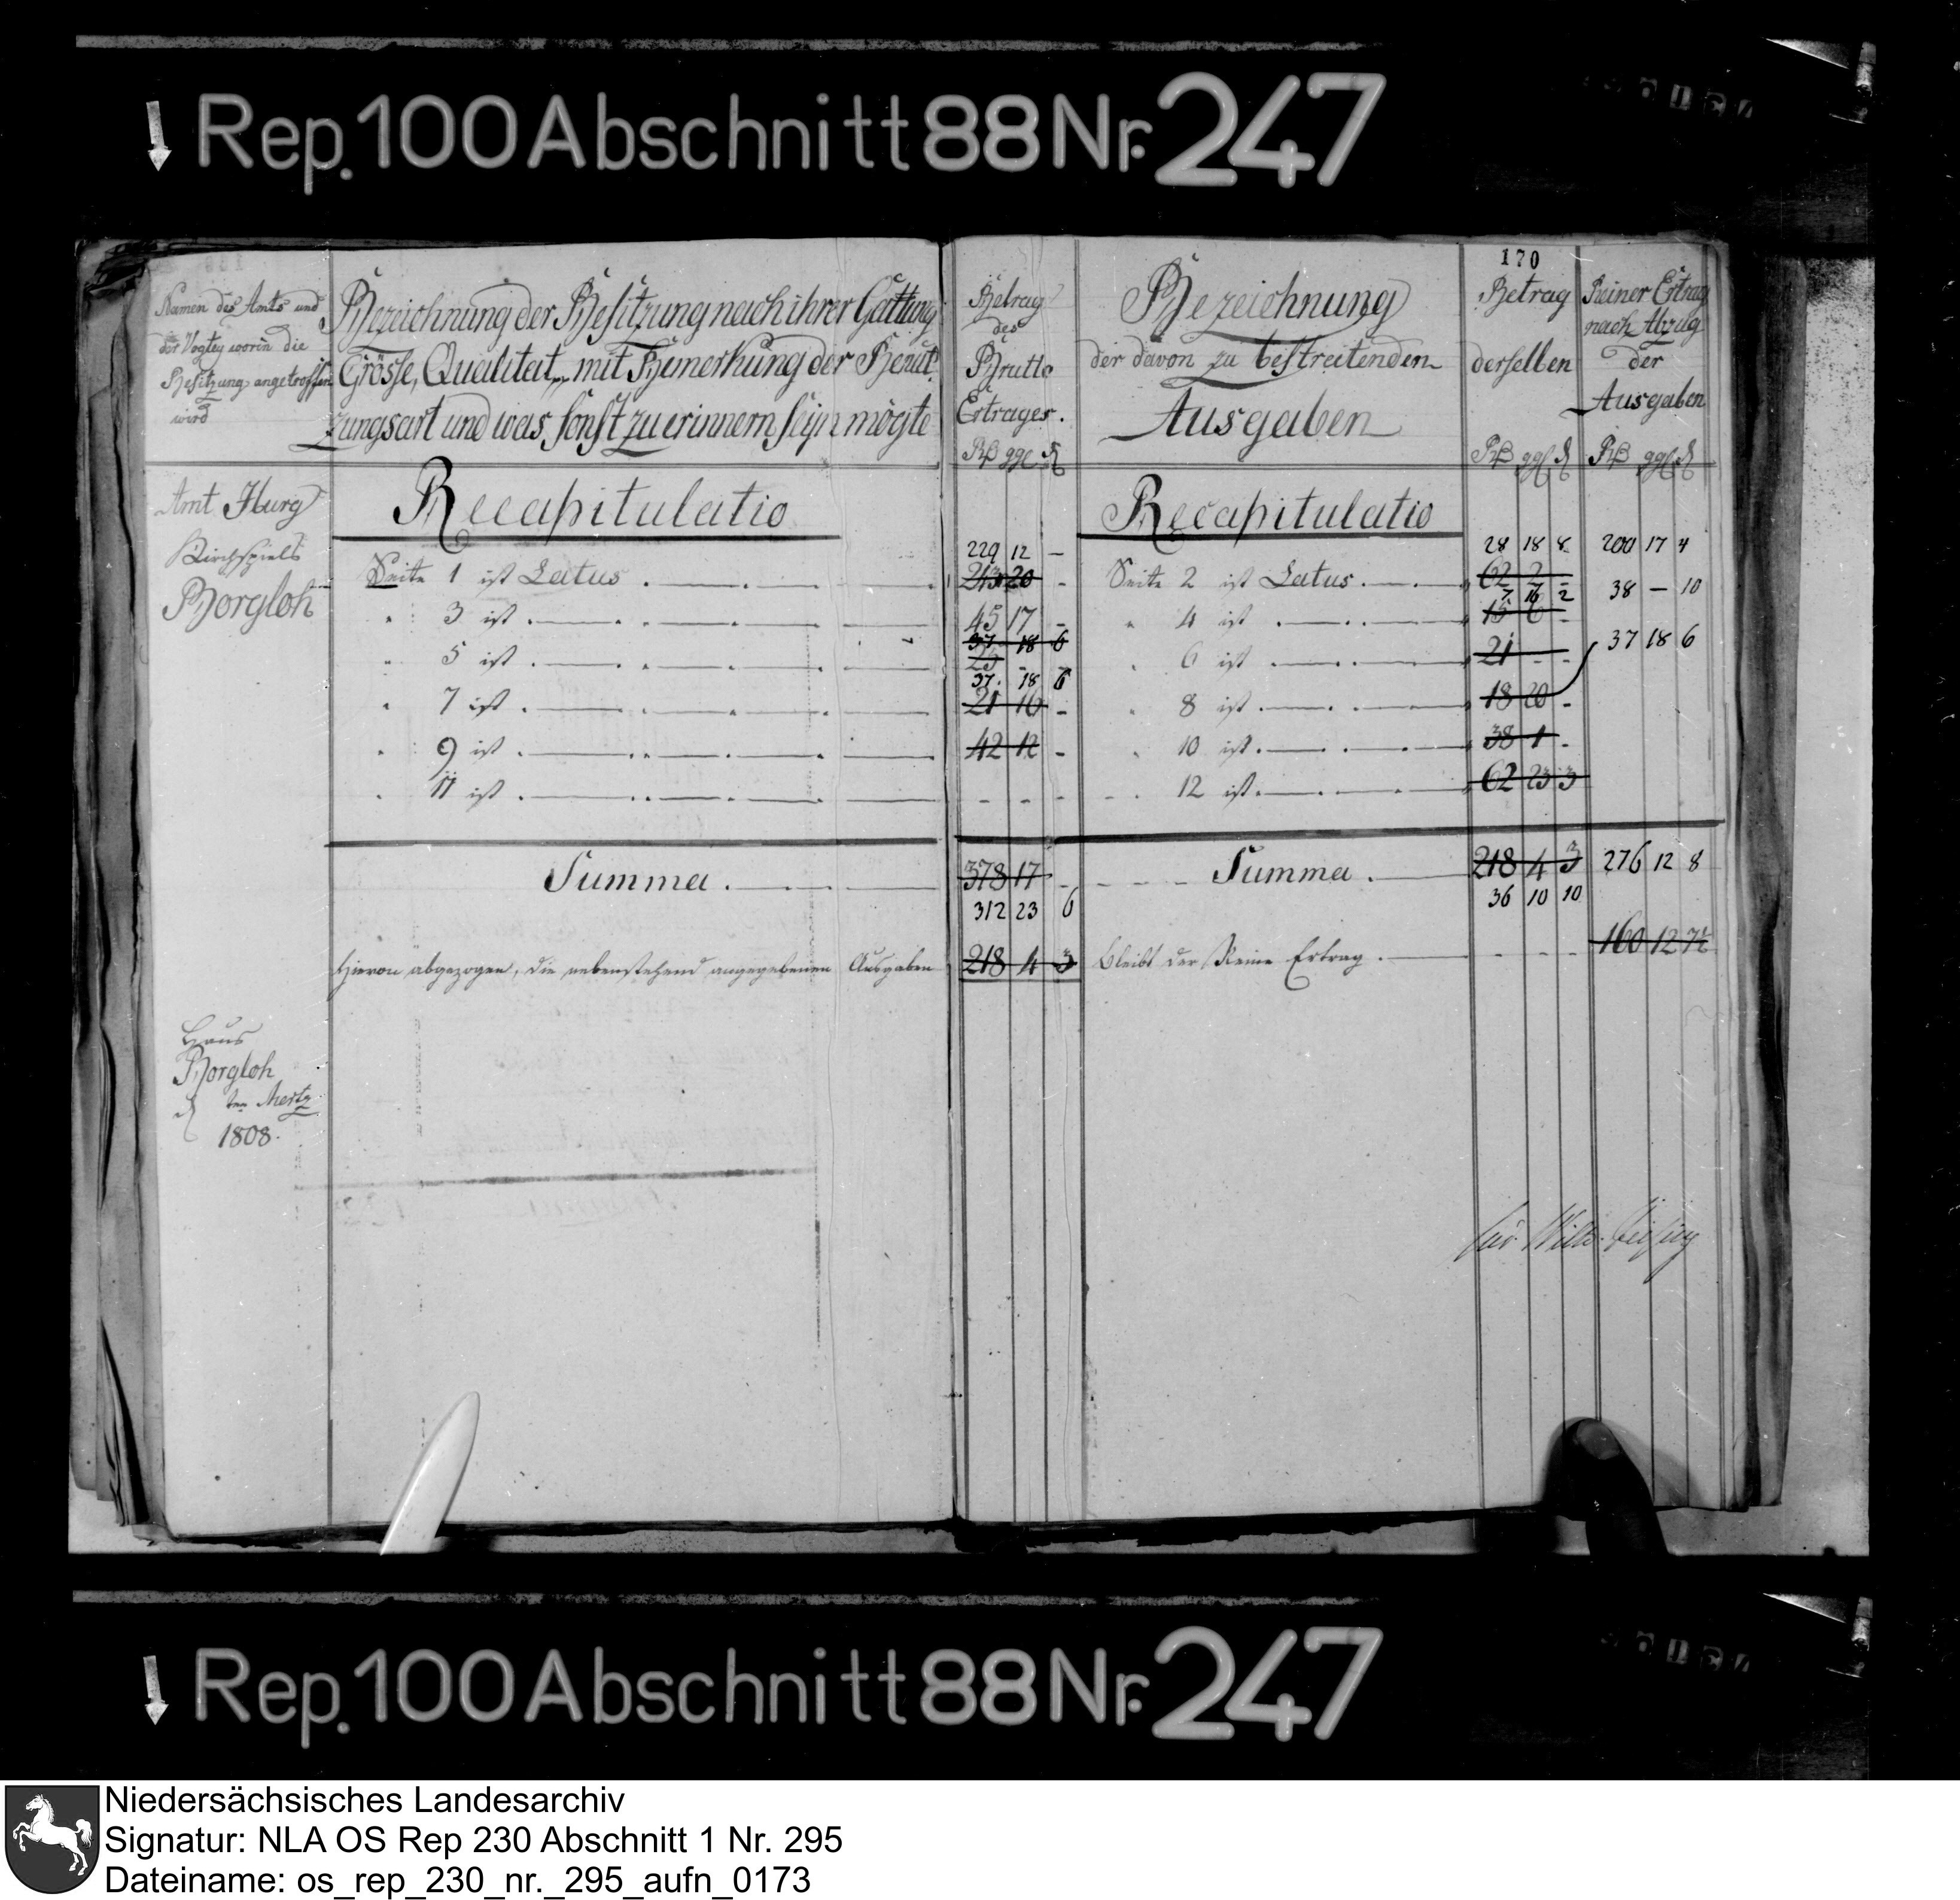 Rep. 100 Abschnitt 88 Nr. 247
170
Namen des Amts und
der Vogtey worin die
Besitzung angetroffen
wird
Bezeichnung der Besitzung nach ihrer Gattung
Grösse, Qualitaet, mit Bemerkung der Benut
zungsart und was sonst zu erinnern seyn mögte
Betrag
des
Brutto
Ertrages.
Rß ggl ₰
Bezeichnung
der davon zu bestreitenden
Ausgaben
Betrag
derselben
Rß ggl ₰
Reiner Ertrag
nach Abzug
der
Ausgaben
Rß ggl ₰
Amt Iburg
Kirchspiels
Borgloh
Recapitulatio
Recapitulatio
229 12 — 28 18 8 200 17 4
Seite 1 ist Latus 243 20 - Seite 2 ist Latus 62 2 -
7 16 2 38 — 10
" 3 ist 45 17 - " 4 ist 15 6 -
37 18 6 37 18 6
" 5 ist 25 - - " 6 ist 21 - -
37 18 6
" 7 ist 21 16 - " 8 ist 18 20 -
" 9 ist 42 12 - " 10 ist 38 1 -
" 11 ist - - - " 12 ist 62 23 3
Summa 378 17 - Summa 218 4 3 276 12 8
312 23 6 36 10 10
Hievon abgezogen, die nebenstehend angegebenen Ausgaben 218 4 3 bleibt der Reine Ertrag 160 12
Haus
Borgloh
d ten Mertz
1808.
Rep. 100 Abschnitt 88 Nr. 247
Niedersächsisches Landesarchiv
Signatur: NLA OS Rep 230 Abschnitt 1 Nr. 295
Dateiname: os_rep_230_nr._295_aufn_0173